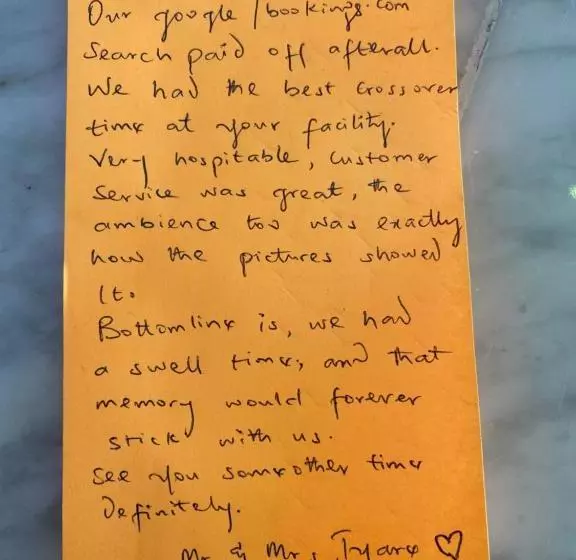 Our google/bookings.com
Search paid off afterall.
We had the best crossover
time at your facility.
Very hospitable, customer
service was great, the
ambience too was exactly
how the pictures showed
It.
Bottomline is, we had
a swell time, and that
memory would forever
stick with us.
See you someother time
Definitely.
Mr & Mrs